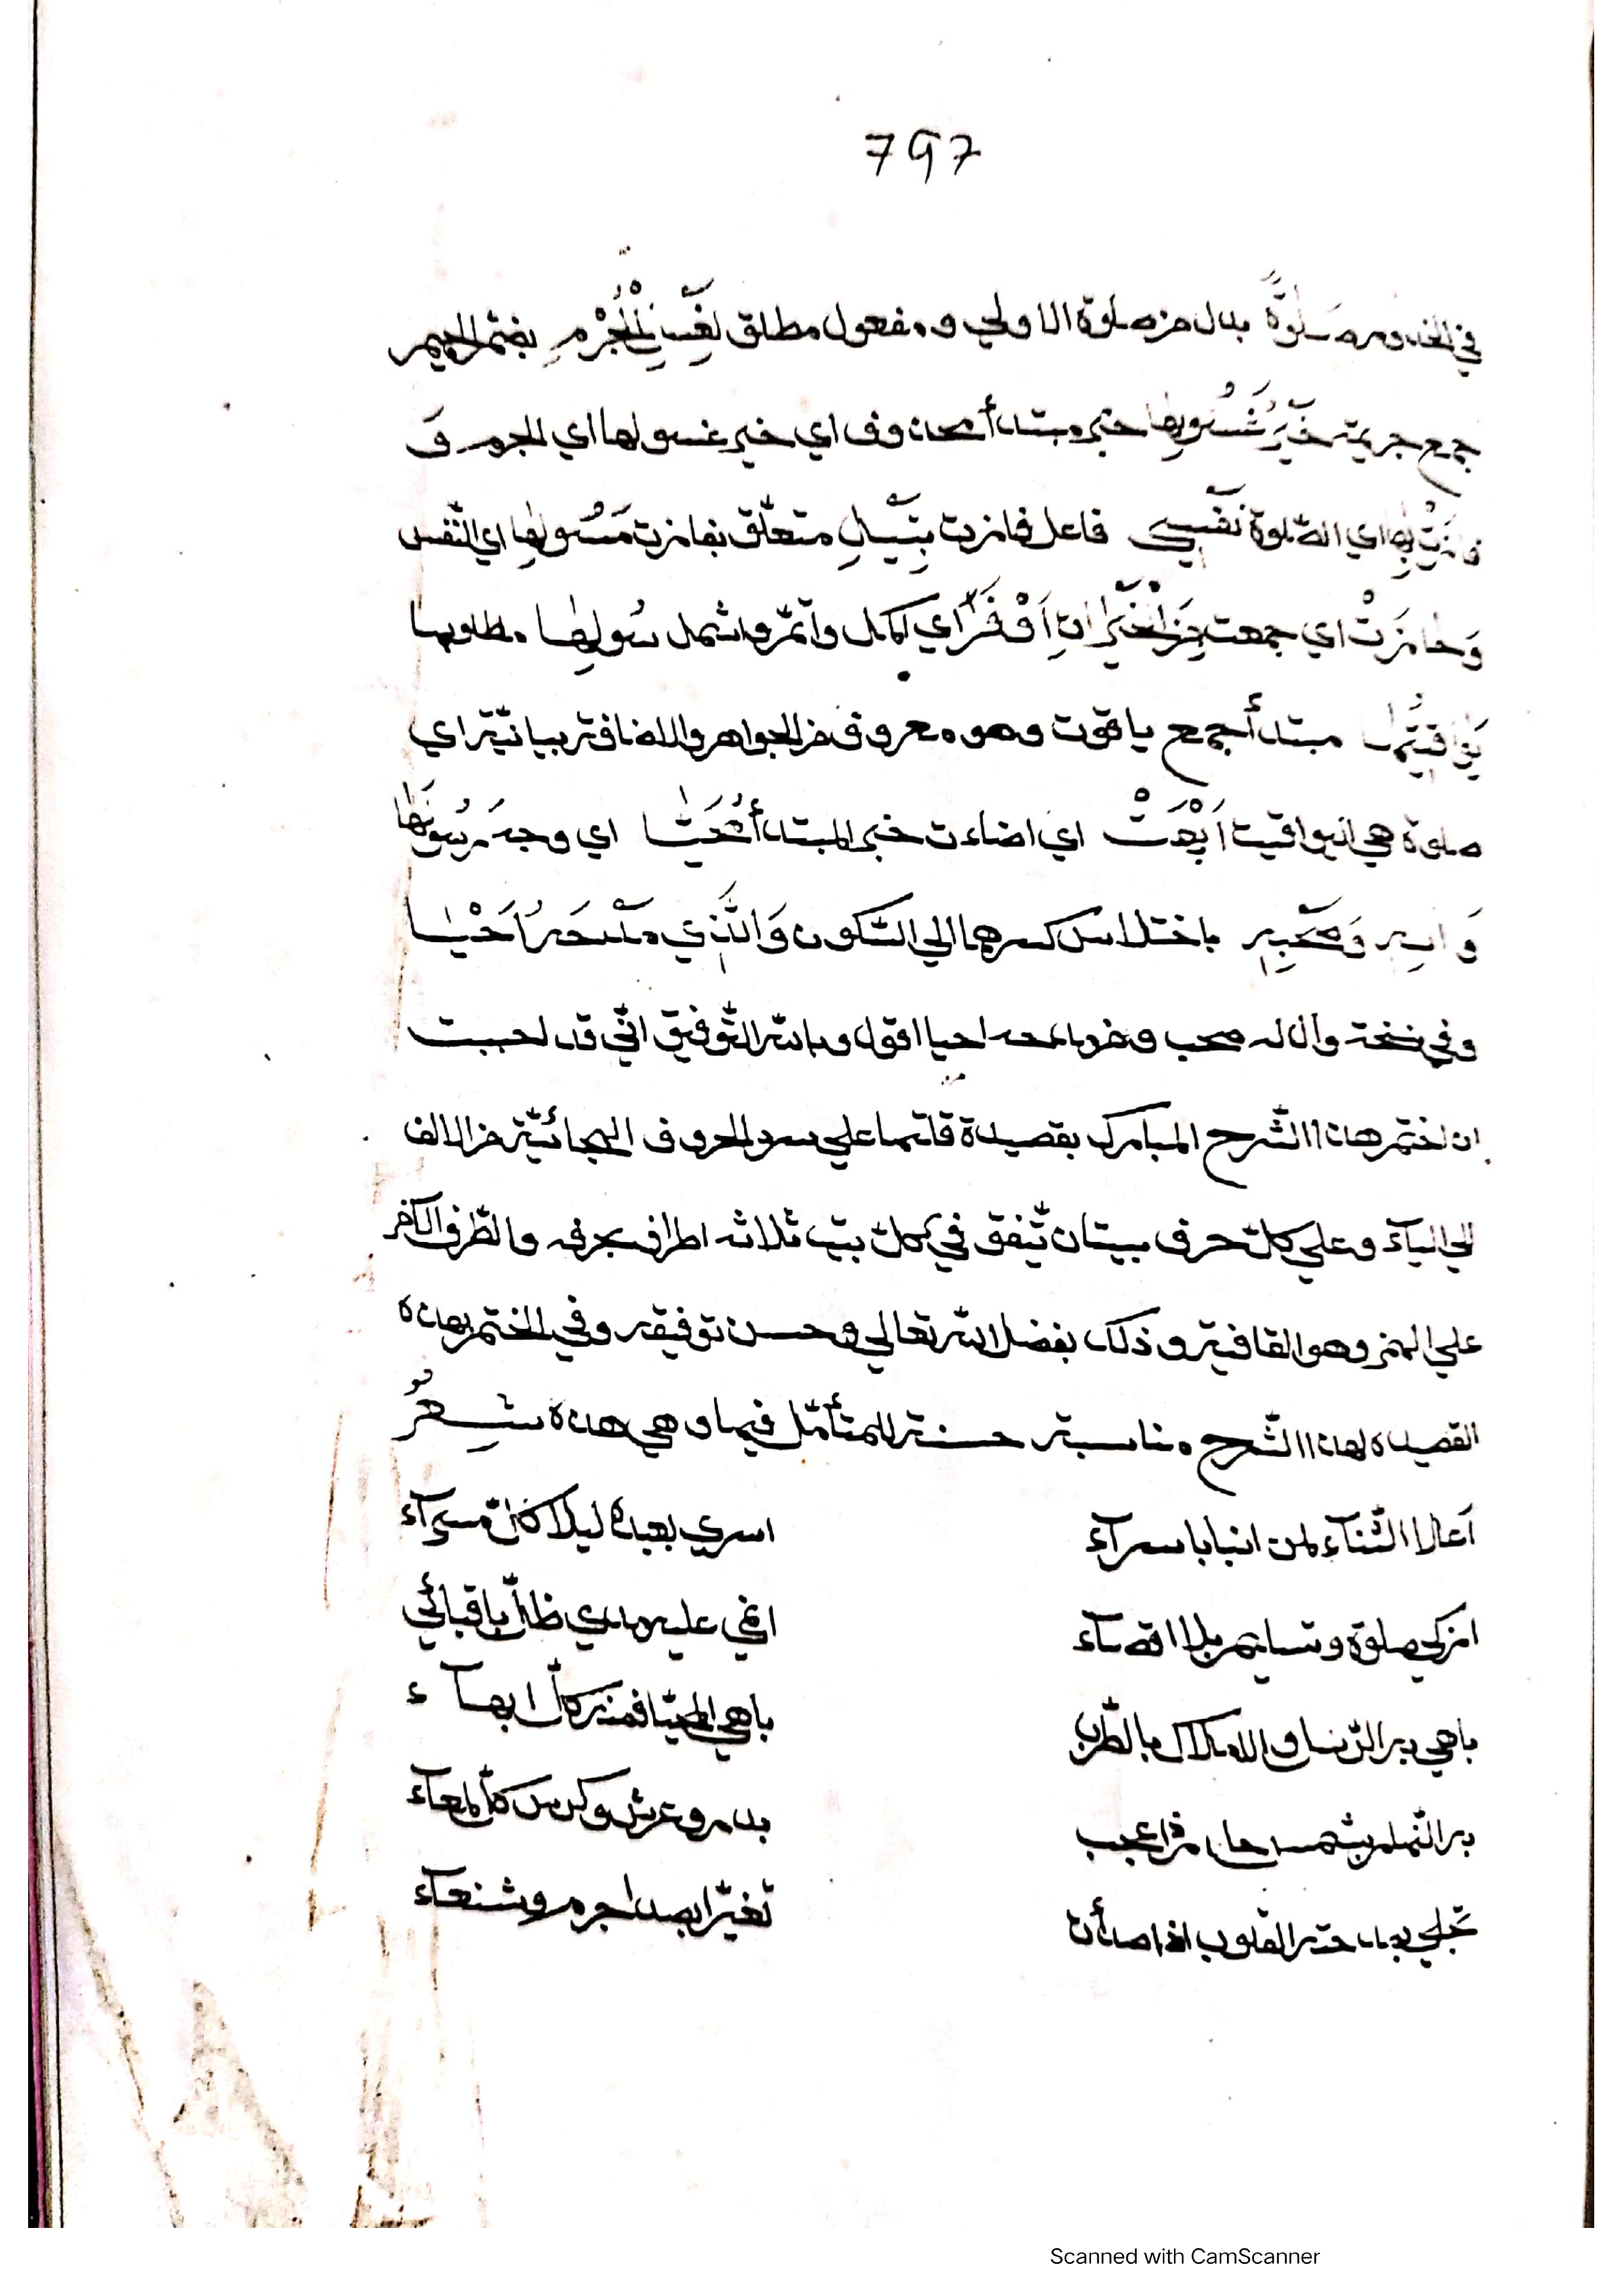 797
في الخدوم صَلٰوةً بدل من صلوة الاولي ومفعول مطلق لِغَسْلِ الْجُرْمِ بضمّ الجيم
جمع جريمة خَيْرُ غَسُولِهَا خبر مبتدأ محذوف اي خير غسولها اي الجرم وَ
فَازَتْ بِهَا اي الصّلوة نَفْسِي فاعل فازت بِنَيْلِ متعلّق بفازت مَسُولِهَا اي النّفس
وَحَازَتْ اي جمعت مِنَ الْخَيْرَاتِ اَوْفَرَ اي اكمل واتمّ واشمل سُولِهَا مطلوبها
يَوَاقِيتُهَا مبتدأ جمع ياقوت وهو معروف من الجواهر والاضافة بيانيّة اي
صلوة هي اليواقيت اَبْهَتْ اي اضاءت خبر المبتدأ مُحَيَّا اي وجه رَسُولِهَا
وَاٰلِهِ وَصَحْبِهِ باختلاس كسرهما الي السّكون وَالَّذِي مَدْحَهُ اَحْيَا
وفي نسخة وال له صحب ومن مدحه احيا اقول وبالله التّوفيق انّي قد احببت
ان اختم هذا الشّرح المبارك بقصيدة قلتها علي سرد الحروف الهجائيّة من الالف
الي الياء وعلي كلّ حرف بيتان تتّفق في كلّ بيت ثلاثه اطراف بحرفه والطّرف الآخر
علي الهمز وهو القافية وذلك بفضل الله تعالي وحسن توفيقه وفي الختم بهذه
القصيده لهذا الشّرح مناسبة حسنة للمتأمّل فيها وهي هذه شِعْرٌ
اَعلا الثّنآء لمن انبا باسرآء
اسري بعبده ليلا كلّ مسرآء
ازكي صلوة وتسليم بلا اقصآء
اغمي عليه مدي ظلّ باقبائي
باهي به الرّسل والاملاك بالطّرب
باهي المحيّا فمنه كلّ ابهآء
به النّجم بشمس حار من اعجب
بدر وعرش وكرسي كلّ لمعآء
تجلي بمدحته القلوب اذا صدأت
تغيّرا بصدا جرم وشنعآء
Scanned with CamScanner